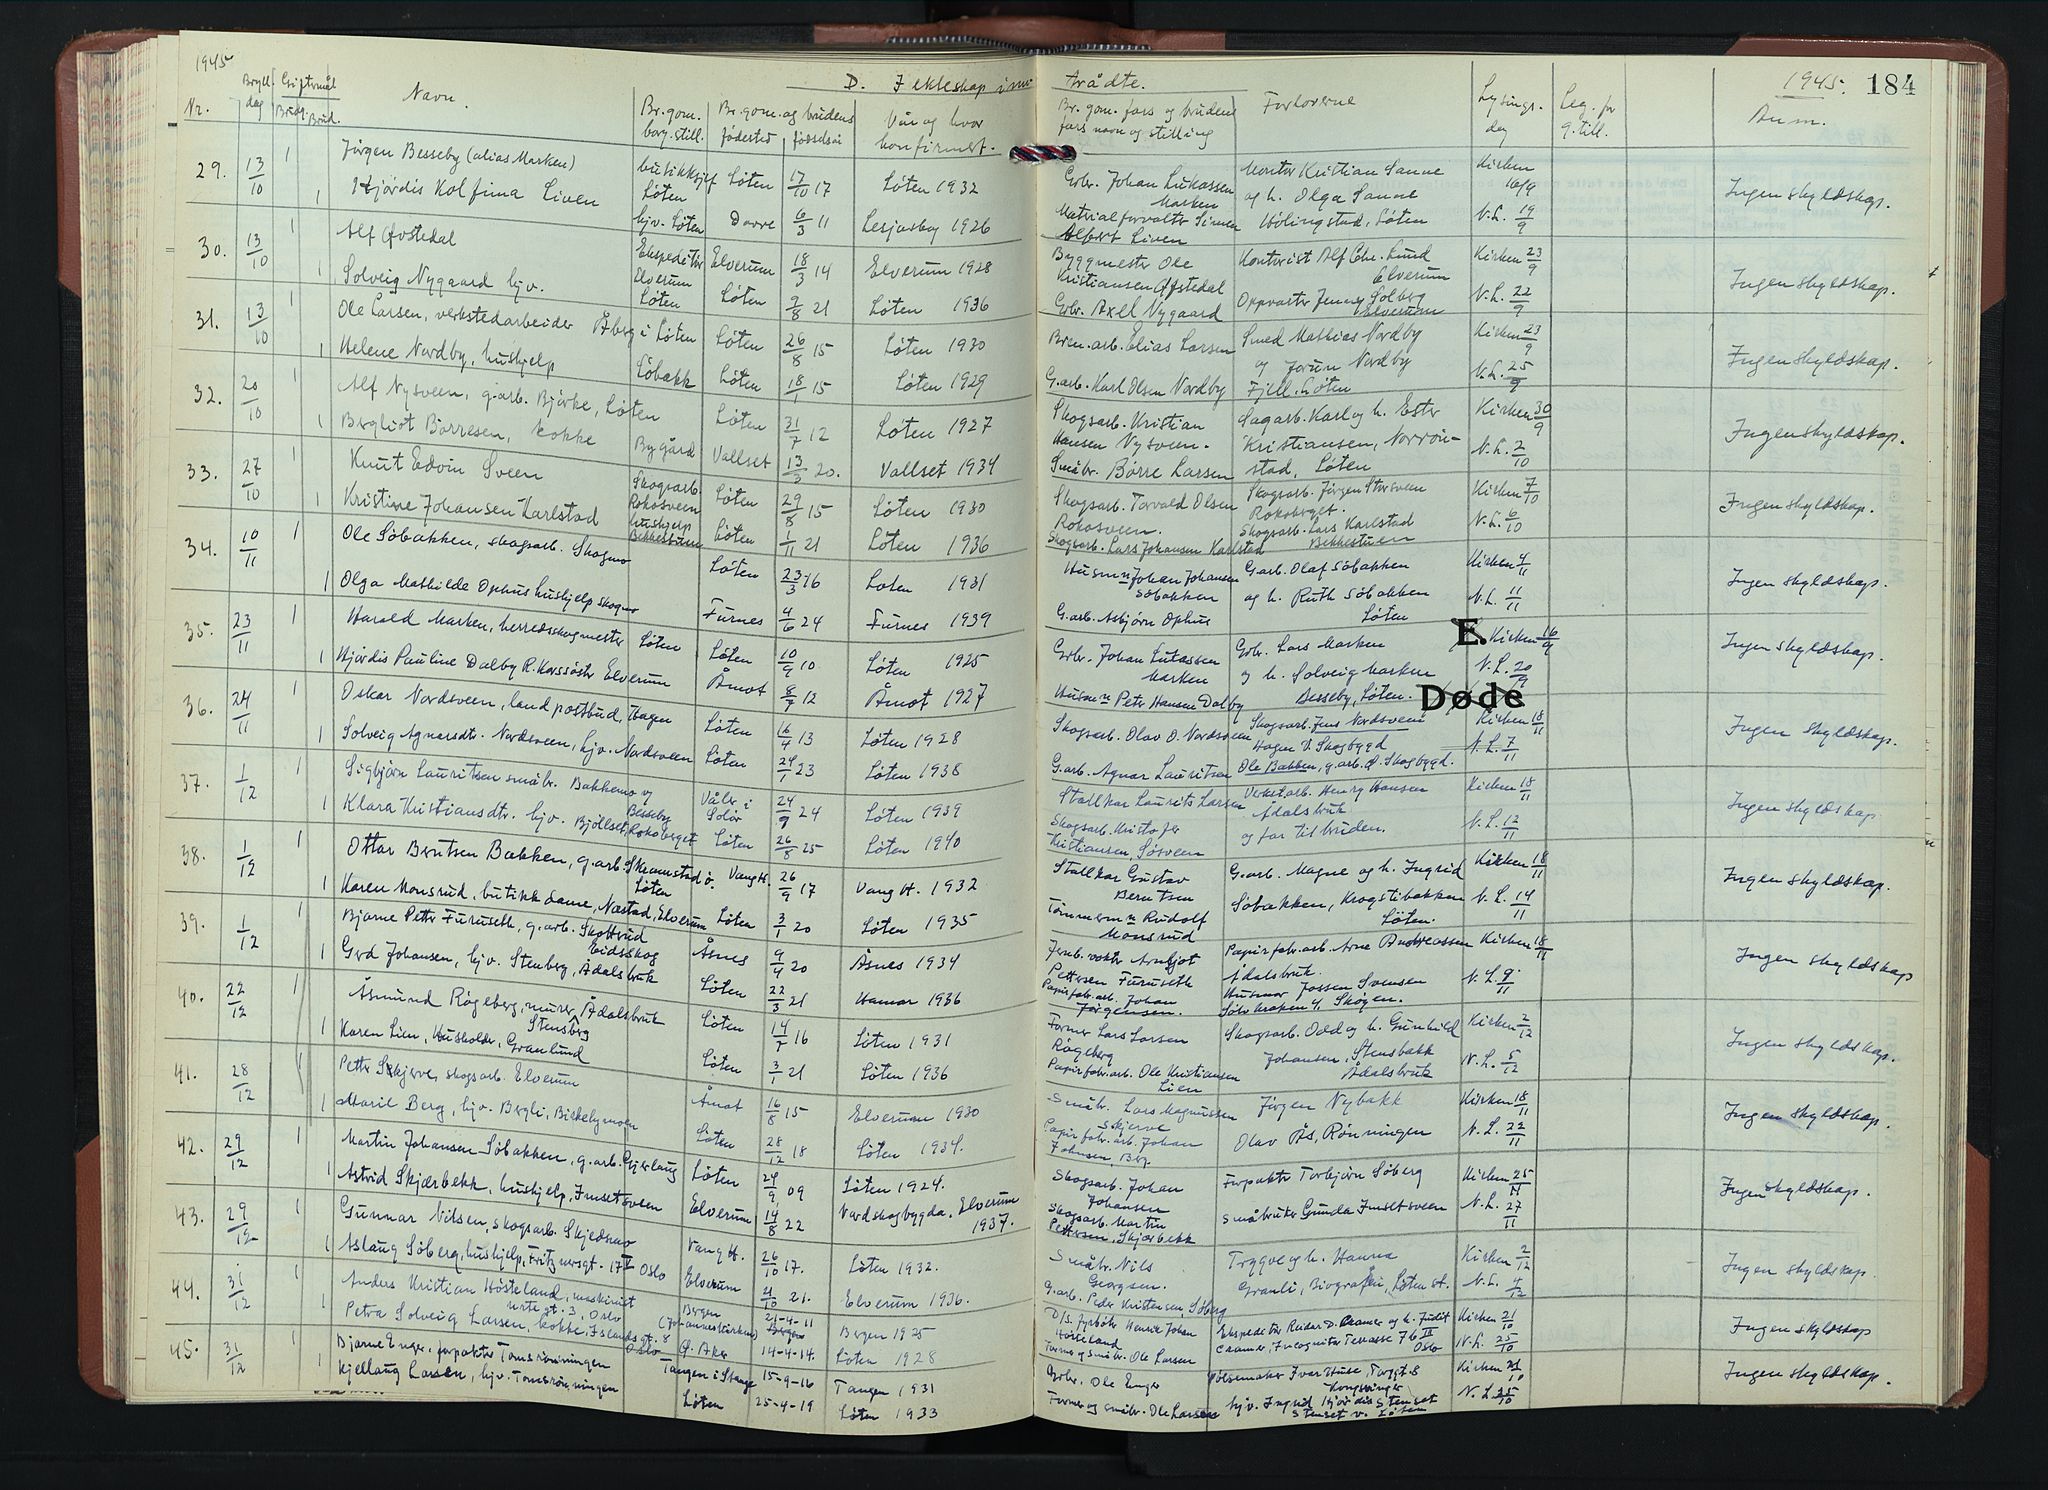 1945
D. I ekteskap inn-
trådte.
1945. 184
Nr. Bryll. dag Giftermål Brudg. Brud. Navn. Br.gom. borg.still. Br.gom. og brudens fødested fødselsår Når og hvor konfirmert. Br.gom. fars og brudens fars navn og stilling Forloverne Lysings- dag Leg. for g. till. Anm.
29. 13/10 1 Jörgen Besseby (alias Marken) butikksjef Løten Løten 17/10 17 Løten 1932 Grbr. Johan Lukassen Marken Montör Kristian Sanne Kirken 16/9 Ingen skyldskap.
1 Hjørdis Kolfinna Liven hjv. Løten Dovre 6/3 11 Lesjaskog 1926 Materialforvalter Simen Albert Liven og h. Olga Sanne Hølingstad, Løten N.L. 19/9
30. 13/10 1 Alf Øfstedal Ekspeditör Elverum Elverum 18/3 14 Elverum 1928 Byggmester Ole Kristiansen Øfstedal Kontorist Alf Chr. Lund Elverum Kirken 23/9 Ingen skyldskap.
1 Solveig Nygaard hjv. Løten Løten 9/8 21 Løten 1936 Grbr. Axel Nygaard Oppvarter Jenny Solberg Elverum N.L. 22/9
31. 13/10 1 Ole Larsen, verkstedarbeider Åberg i Løten Løten 26/8 15 Løten 1930 Bren.arb. Elias Larsen Smed Mathias Nordby Kirken 23/9 Ingen skyldskap.
1 Helene Nordby, hushjelp Söbakk Løten 18/1 15 Løten 1929 G.arb. Karl Olsen Nordby og Jorun Nordby Fjell. Løten N.L. 25/9
32. 20/10 1 Alf Nysveen, g.arb. Bjørke, Løten Løten 31/7 12 Løten 1927 Skogsarb. Kristian Hansen Nysveen. Sagarb. Karl og h. Ester Kirken 30/9 Ingen skyldskap.
1 Bergliot Börresen, kokke Bygård Vallset 13/3 20. Vallset 1934 Småbr. Börre Larsen Kristiansen, Norröns- stad, Løten N.L. 2/10
33. 27/10 1 Knut Edvin Sveen Skogsarb. Rokosveen Løten 29/8 15 Løten 1930 Skogsarb. Torvald Olsen Rokosveen. Skogsarb. Jörgen Storsveen Rokoberget. Kirken 7/10 Ingen skyldskap.
1 Kristine Johansen Karlstad hushjelp Bekkestuen Løten 1/11 21 Løten 1936 Skogsarb. Lars Johansen Karlstad Skogsarb. Lars Karlstad Bekkestuen N.L. 6/10
34. 10/11 1 Ole Söbakken, skogsarb. Skogmo Løten 23/3 16 Løten 1931 Husmn Johan Johansen Söbakken G.arb. Olaf Söbakken Kirken 4/11 Ingen skyldskap.
1 Olga Mathilde Ophus hushjelp Skogmo Furnes 4/6 24 Furnes 1939 G.arb. Asbjørn Ophus og h. Ruth Söbakken Løten N.L. 11/11
35. 23/11 1 Harald Marken, herredsskogmester Løten Løten 10/9 10 Løten 1925 Grbr. Johan Lukassen Marken Grbr. Lars Marken E. Kirken 16/9 Ingen skyldskap.
1 Hjördis Pauline Dalby R.Korssöster Elverum Åmot 8/7 12 Åmot 1927 Husmn Peter Hansen Dalby og h. Solveig Marken Besseby, Løten. N.L. 20/9
Døde
36. 24/11 1 Oskar Nordsveen, landpostbud, Hagen Løten 16/4 13 Løten 1928 Skogsarb. Olav O. Nordsveen Skogsarb. Jens Nordsveen Hagen V. Skogbygd Kirken 18/11 Ingen skyldskap.
1 Solveig Agnarsdtr. Nordsveen, hjv. Nordsveen Løten 24/1 23 Løten 1938 G.arb. Agnar Lauritsen Ole Bakken, g.arb. Ø. Skogbygd. N.L. 7/11
37. 1/12 1 Sigbjörn Lauritsen småbr. Bakkemo og Besseby Våler i Solör 24/9 24 Løten 1939 Stallkar Laurits Larsen Verkst.arb. Henry Hansen Ådalsbruk Kirken 18/11 Ingen skyldskap
1 Klara Kristiansdtr. hjv. Bjöllset, Rokoberget Løten 26/8 25 Løten 1940 Skogsarb. Kristofer Kristiansen, Søsveen og far til bruden. N.L. 12/11
38. 1/12 1 Ottar Berntsen Bakken, g.arb. Skramstad ö. Løten Vang H. 26/9 17 Vang H. 1932 Stallkar Gustav Berntsen G.arb. Magne og h. Ingrid Kirken 18/11 Ingen skyldskap.
1 Karen Monsrud, butikkdame, Næstad, Elverum Løten 3/1 20 Løten 1935 Tömmermn Rudolf Monsrud Söbakken, Krogstibakken Løten. N.L. 14/11
39. 1/12 1 Bjarne Petter Furuseth, g.arb. Skottrud Eidsskog Åsnes 9/4 20 Åsnes 1934 Jernb.vokter Arnljot Pettersen Furuseth Papirfabr.arb. Arne Andreassen Ådalsbruk. Kirken 18/11 Ingen skyldskap
1 Gerd Johansen, hjv. Stenberg, Ådalsbruk Løten 22/3 21 Hamar 1936 Papirfabr.arb. Johan Jørgensen. Husmor Jossen Svensen N.L. 9/11
40. 22/12 1 Åsmund Rögeberg, murer, Ådalsbruk Stensberg Løten 14/7 16 Løten 1931 Former Lars Larsen Rögeberg Skogsarb. Odd og h. Gunhild Kirken 2/12 Ingen skyldskap.
1 Karen Lien, Husholder, Granlund Løten 3/1 21 Løten 1936 Papirfabr.arb. Ole Kristiansen Lien Johansen, Stensbakk Ådalsbruk N.L. 5/12
41. 28/12 1 Petter Skjerve, skogsarb. Elverum Åmot 16/8 15 Elverum 1930 Småbr. Lars Magnussen Skjerve Jörgen Nybakk Kirken 18/11 Ingen skyldskap.
1 Maril Berg, hjv. Bergli, Birkebymoen Løten 28/12 18 Løten 1934. Papirfabr.arb. Johan Johnsen, Berg Olav Ås, Rönningen N.L. 22/11
42. 29/12 1 Martin Johansen Söbakken, g.arb. Gjerlaug Løten 24/9 09 Løten 1924. Skogsarb. Johan Johansen Forpakter Torbjörn Söberg Kirken 25/11 Ingen skyldskap.
1 Astrid Skjærbekk, hushjelp, Imsetsveen Elverum 14/8 22 Nordskogbygda, Elverum 1937. Skogsarb. Martin Pettersen, Skjærbekk Småbruker Gunda Imsetsveen N.L. 27/11
43. 29/12 1 Gunnar Nilsen, skogsarb. Skjedsmo Vang H. 26/10 17. Løten 1932. Småbr. Nils Georgsen. Trygve og h. Hanna Kirken 2/12 Ingen skyldskap.
1 Aslaug Söberg, hushjelp, Fritznersgt. 17 II Oslo Elverum 21/10 21. Elverum 1936. G.arb. Peder Kristensen Söberg Granli, Biografen, Løten st. N.L. 4/12
44. 31/12 1 Anders Kristian Hösteland, maskinist Urtegt. 3, Oslo Bergen (Johanneskirken) 21-4-11 Bergen 1925 D/s. fyrböter Henrik Johan Hösteland Ekspeditör Reidar D. Cramer og h. Judit Kirken 21/10 Ingen skyldskap
1 Petra Solveig Larsen, kokke, Islands gt. 8 Oslo Ø. Aker 14-4-14. Løten 1928 Former og småbr. Ole Larsen Cramer, Incognito Terrasse 7b III Oslo N.L. 25/10
45. 31/12 1 Bjarne Enger, forpakter Tomsrönningen Tangen i Stange 15-9-16 Tangen 1931 Grbr. Ole Enger Pölsemaker Ivar Huse, Torggt. 8 Kongsvinger Kirken 21/10 Ingen skyldskap.
1 Kjellaug Larsen, hjv. Tomsrönningen Løten 25-4-19 Løten 1933 Former og småbr. Ole Larsen hjv. Ingrid Hjördis Stenset Stenset v. Løten N.L. 25/10